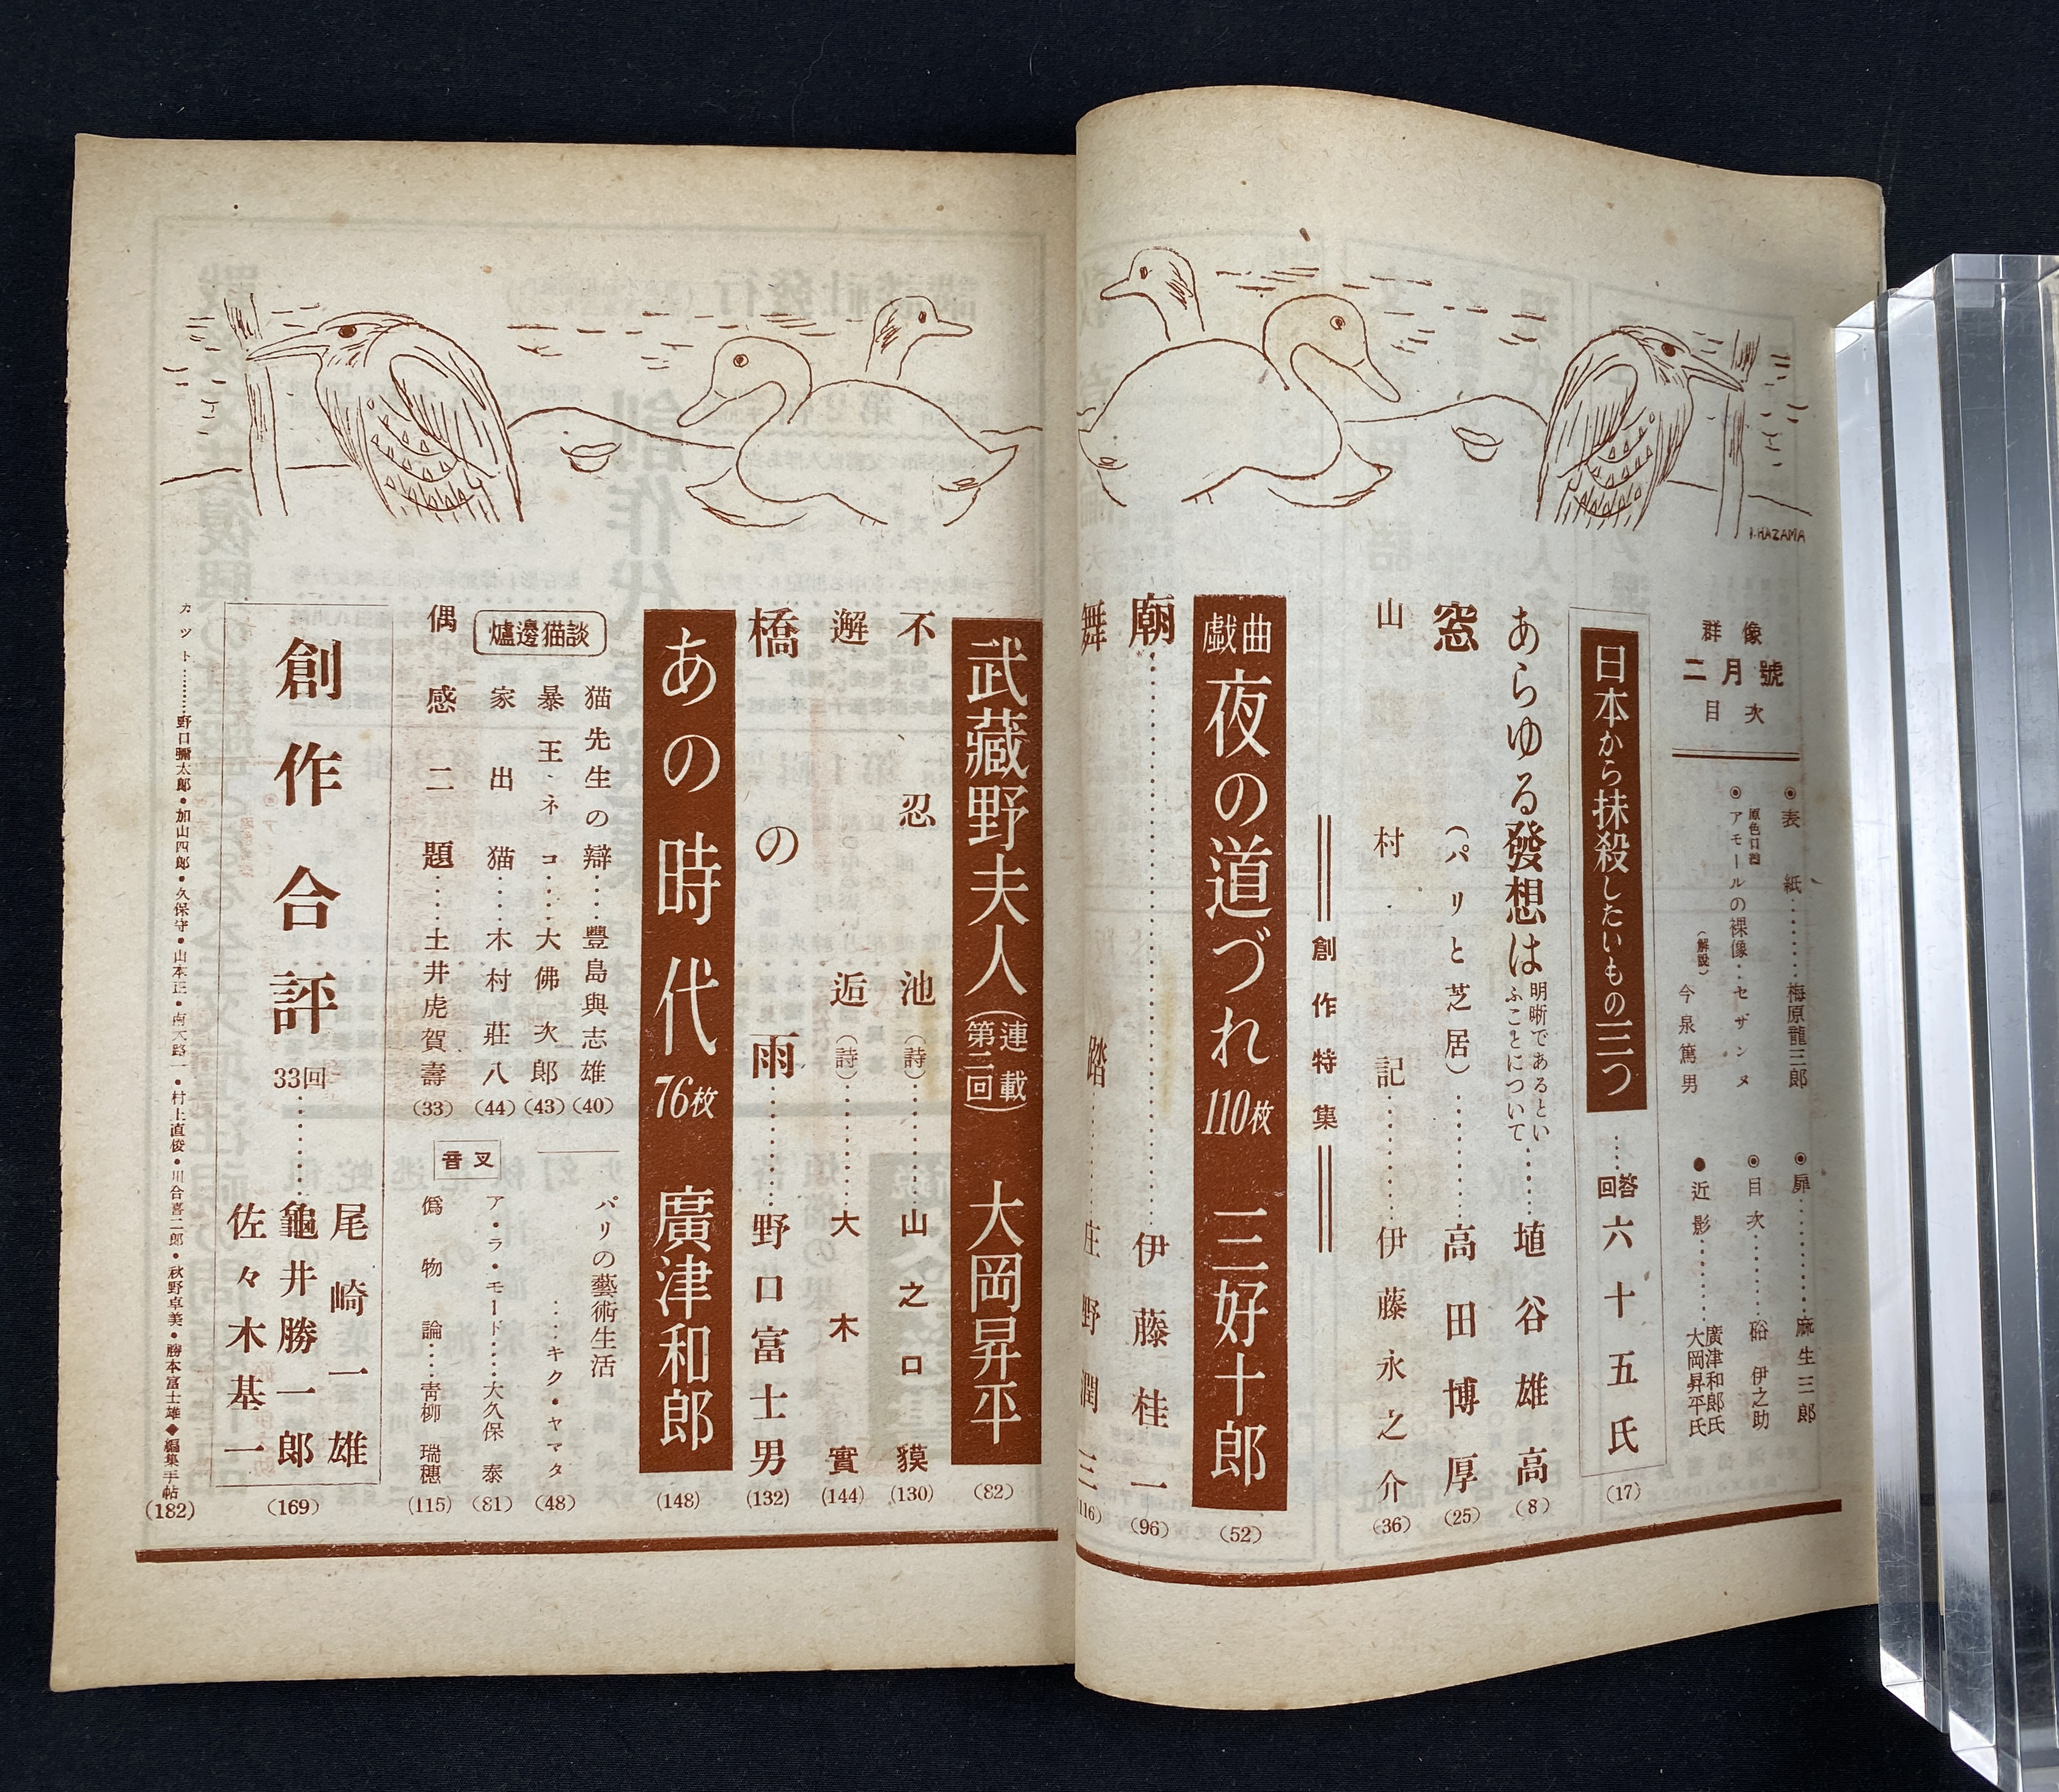 群像
二月號
目次
◉表紙………梅原龍三郎
◉扉………麻生三郎
原色口繪
◉アモールの裸像‥セザンヌ
(解説) 今泉篤男
◉目次………硲伊之助
●近影………廣津和郎氏
大岡昇平氏
日本から抹殺したいもの三つ……回答六十五氏(17)
あらゆる發想は明晰であるといふことについて……埴谷雄高(8)
窓(パリと芝居)………高田博厚(25)
山村記………伊藤永之介(36)
創作特集
戯曲 夜の道づれ 110枚 三好十郎(52)
廟………伊藤桂一(96)
舞踏………庄野潤三(116)
I.HAZAMA
武藏野夫人(連載第二回) 大岡昇平(82)
不忍池(詩)………山之口貘(130)
邂逅(詩)………大木實(144)
橋の雨………野口富士男(132)
あの時代 76枚 廣津和郎(148)
爐邊猫談
猫先生の辯……豐島與志雄(40)
暴王ネコ……大佛次郎(43)
家出猫……木村莊八(44)
偶感二題……土井虎賀壽(33)
音叉
パリの藝術生活
……キク・ヤマタ(48)
ア・ラ・モード……大久保泰(81)
僞物論……靑柳瑞穗(115)
創作合評 33回………尾崎一雄
龜井勝一郎
佐々木基一(169)
カット………野口彌太郎・加山四郎・久保守・山本正・南大路一・村上直俊・川合喜二郎・秋野卓美・勝本富士雄◆編集手帖(182)